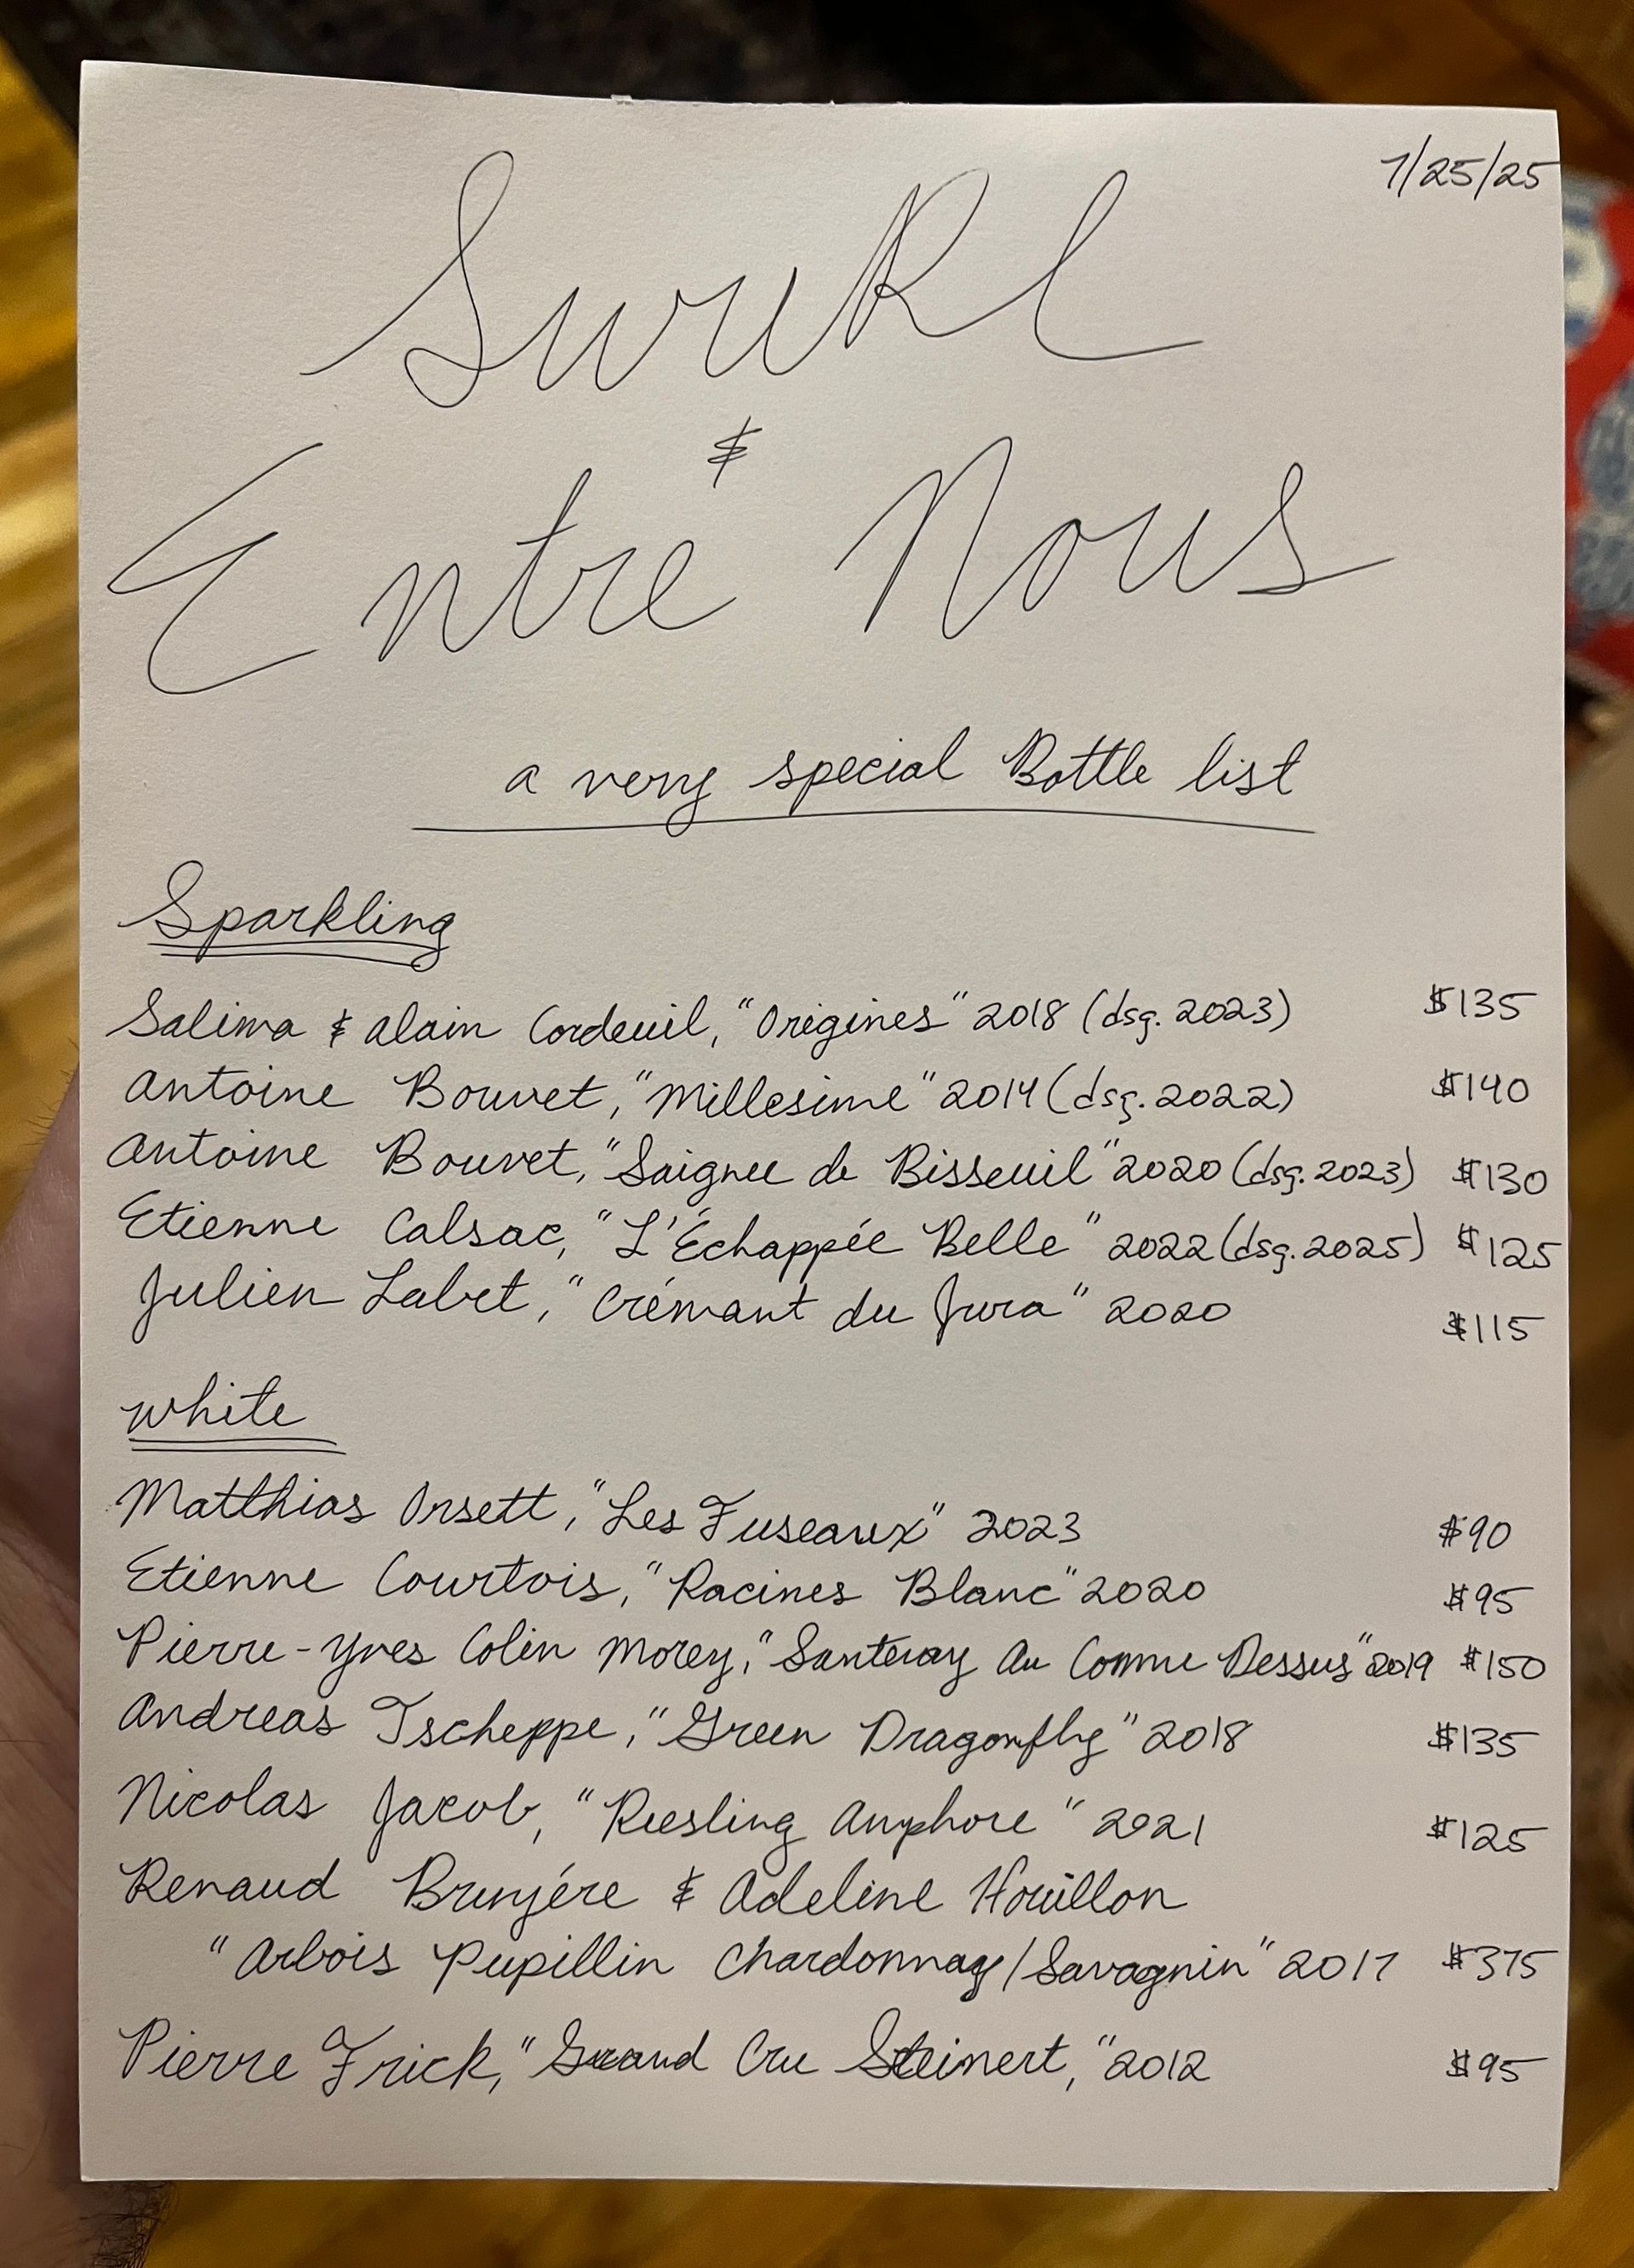 7/25/25
SuruRL
&
Entre Nous
a very special Bottle list
Sparkling
Salima & Alain Cordeuil, "Origines" 2018 (dsg. 2023) $135
Antoine Bouvet, "Millesime" 2014 (dsg. 2022) $140
Antoine Bouvet, "Saignee de Bisseuil" 2020 (dsg. 2023) $130
Etienne Calsac, "L'Échappée Belle" 2022 (dsg. 2025) $125
Julien Labet, "Crémant du Jura" 2020 $115
white
Matthias Orsett, "Les Fuseaux" 2023 $90
Etienne Courtois, "Racines Blanc" 2020 $95
Pierre-Yves Colin Morey, "Santenay Au Comme Dessus" 2019 $150
Andreas Tscheppe, "Green Dragonfly" 2018 $135
Nicolas Jacob, "Riesling Amphore" 2021 $125
Renaud Bruyére & Adeline Houillon
"Arbois Pupillin Chardonnay/Savagnin" 2017 $375
Pierre Frick, "Grand Cru Steinert," 2012 $95